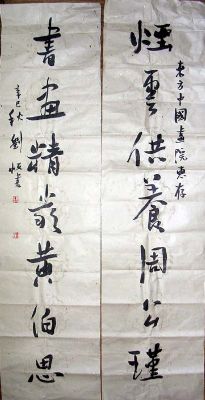 東方中國畫院惠存
煙雲供養周公瑾
書畫精黄伯思
辛巳秋劉恒書